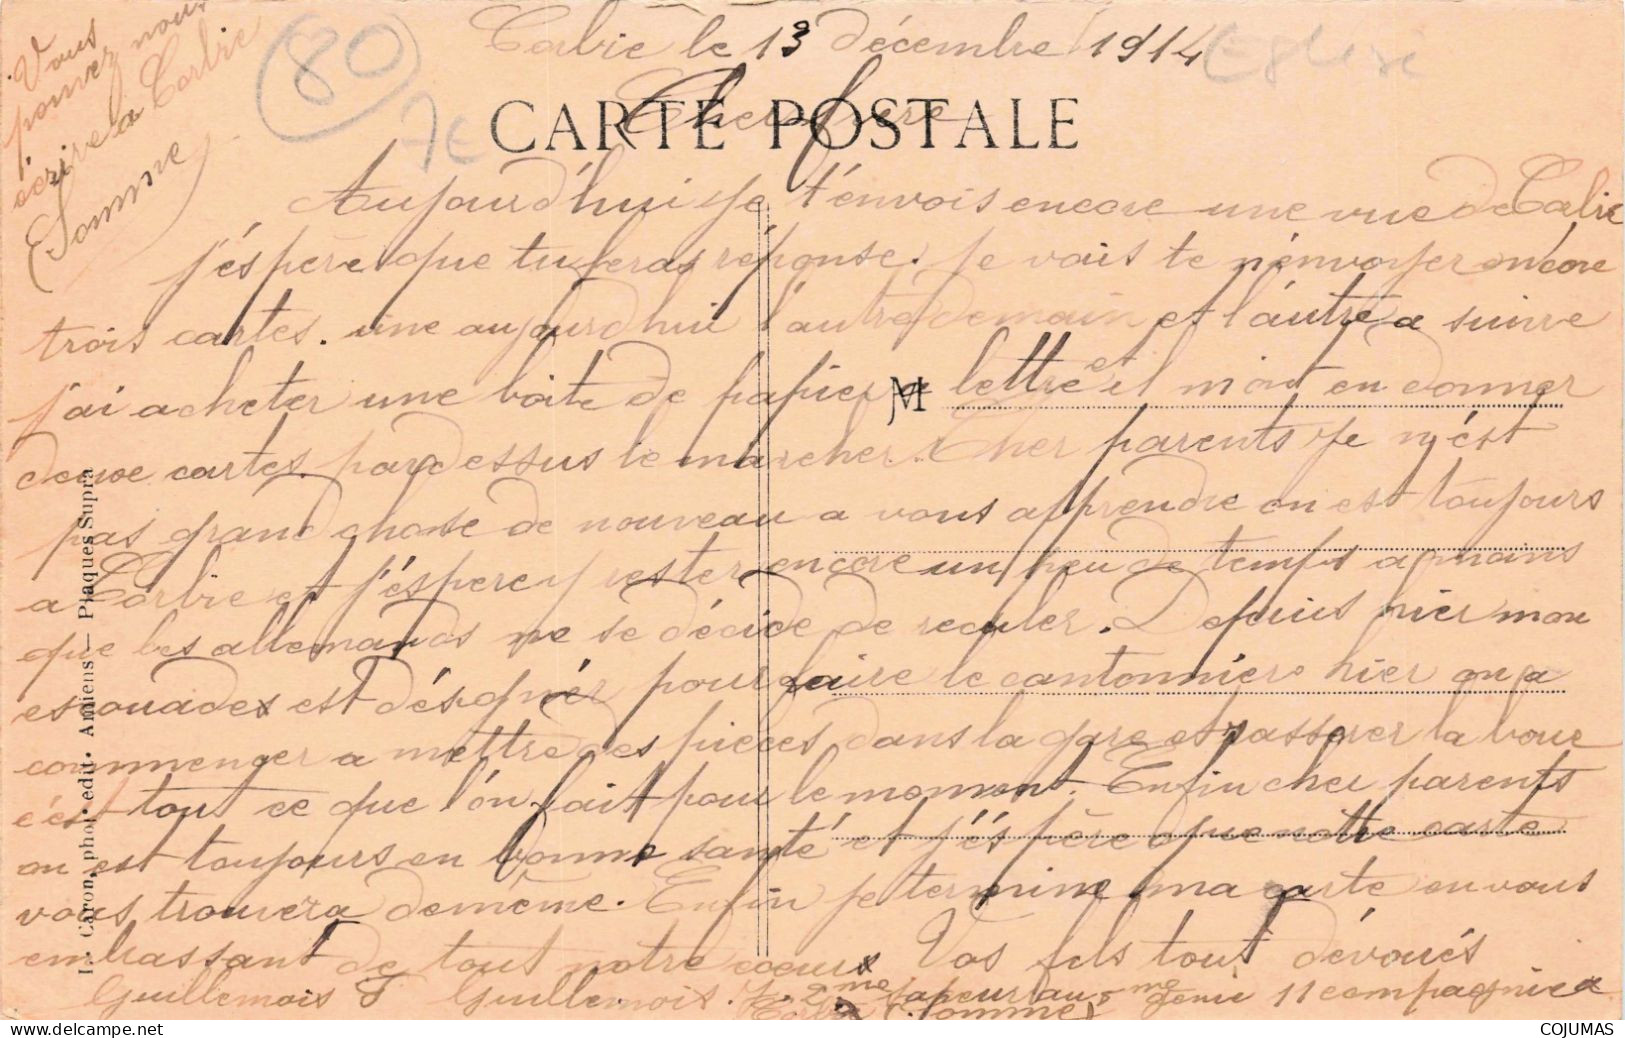 Corbie le 13 décembre 1914
Eglise
80
7€
Vous
pouvez nous
écrire a Corbie
(Somme)
CARTE POSTALE
Cher frère
Aujourd'hui je t'envois encore une vue de Corbie
j'éspère que tu feras réponse. Je vais te n'envoyer encore
trois cartes. une aujourd'hui l'autre demain et l'áutre a suivre
j'ai acheter une boite de papier a lettre et il m'ont en donner
M
deux cartes par dessus le marcher. Cher parents je n'ést
pas grand chose de nouveau a vous apprendre on est toujours
a Corbie et j'éspere y rester encore un peu de temps a moins
que les allemands ne se décide de reculer. Depuis hier mon
escouades est désigner pour faire le cantonnier hier on a
commenger a mettre des pieces dans la gare et ramasser la boue
c'ést tout ce que l'ón fait pour le moment. Enfin cher parents
on est toujours en bonne santé et j'éspère que notre carte
vous trouvera de même. Enfin je termine ma carte en vous
embrassant de tout notre coeurs Vos fils tout dévoués
Guillemois J Guillemois. L. 2me sapeur au 5me génie 11 compagnie a
Corbie (Somme)
L. Caron, phot. edit. Amiens — Plaques Supra
COJUMAS